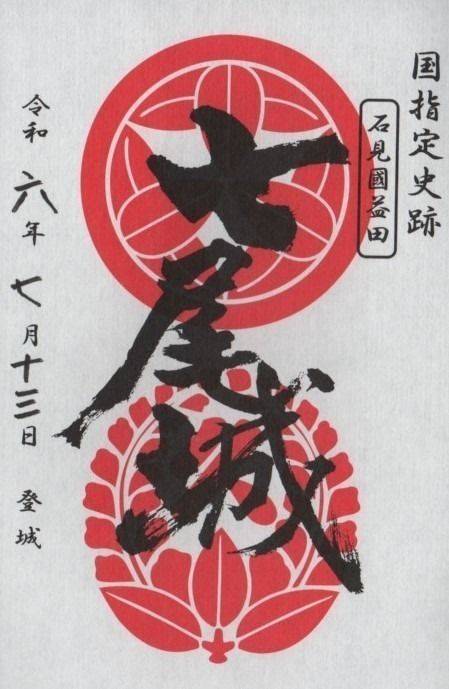 国指定史跡
石見國益田
七尾城
令和六年七月十三日 登城